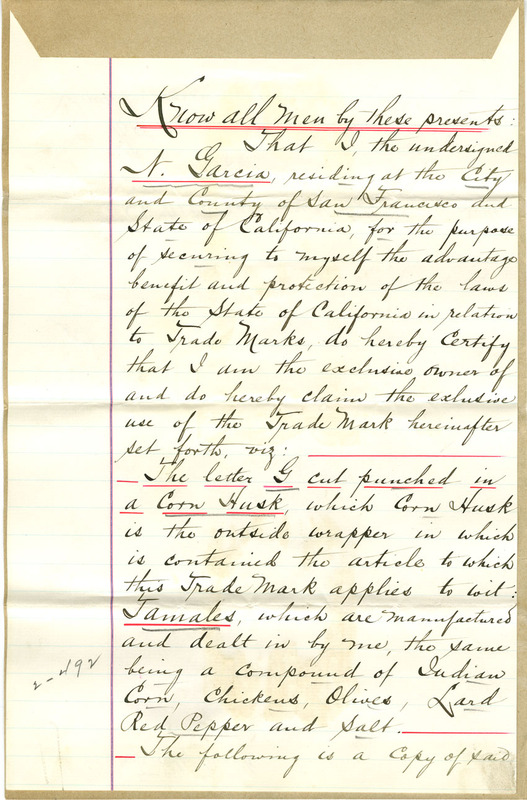 Know all men by these presents:
That I, the undersigned
N. Garcia, residing at the City
and County of San Francisco and
State of California, for the purpose
of securing to myself the advantage
benefit and protection of the laws
of the State of California in relation
to Trade Marks, do hereby Certify
that I am the exclusive owner of
and do hereby claim the exlusive
use of the Trade Mark hereinafter
set forth, viz:
The letter G cut punched in
a Corn Husk, which Corn Husk
is the outside wrapper in which
is contained the article to which
this Trade Mark applies to wit:
Tamales, which are manufactured
and dealt in by me, the same
being a compound of Indian
Corn, Chickens, Olives, Lard
Red Pepper and Salt.
The following is a Copy of said
2-492